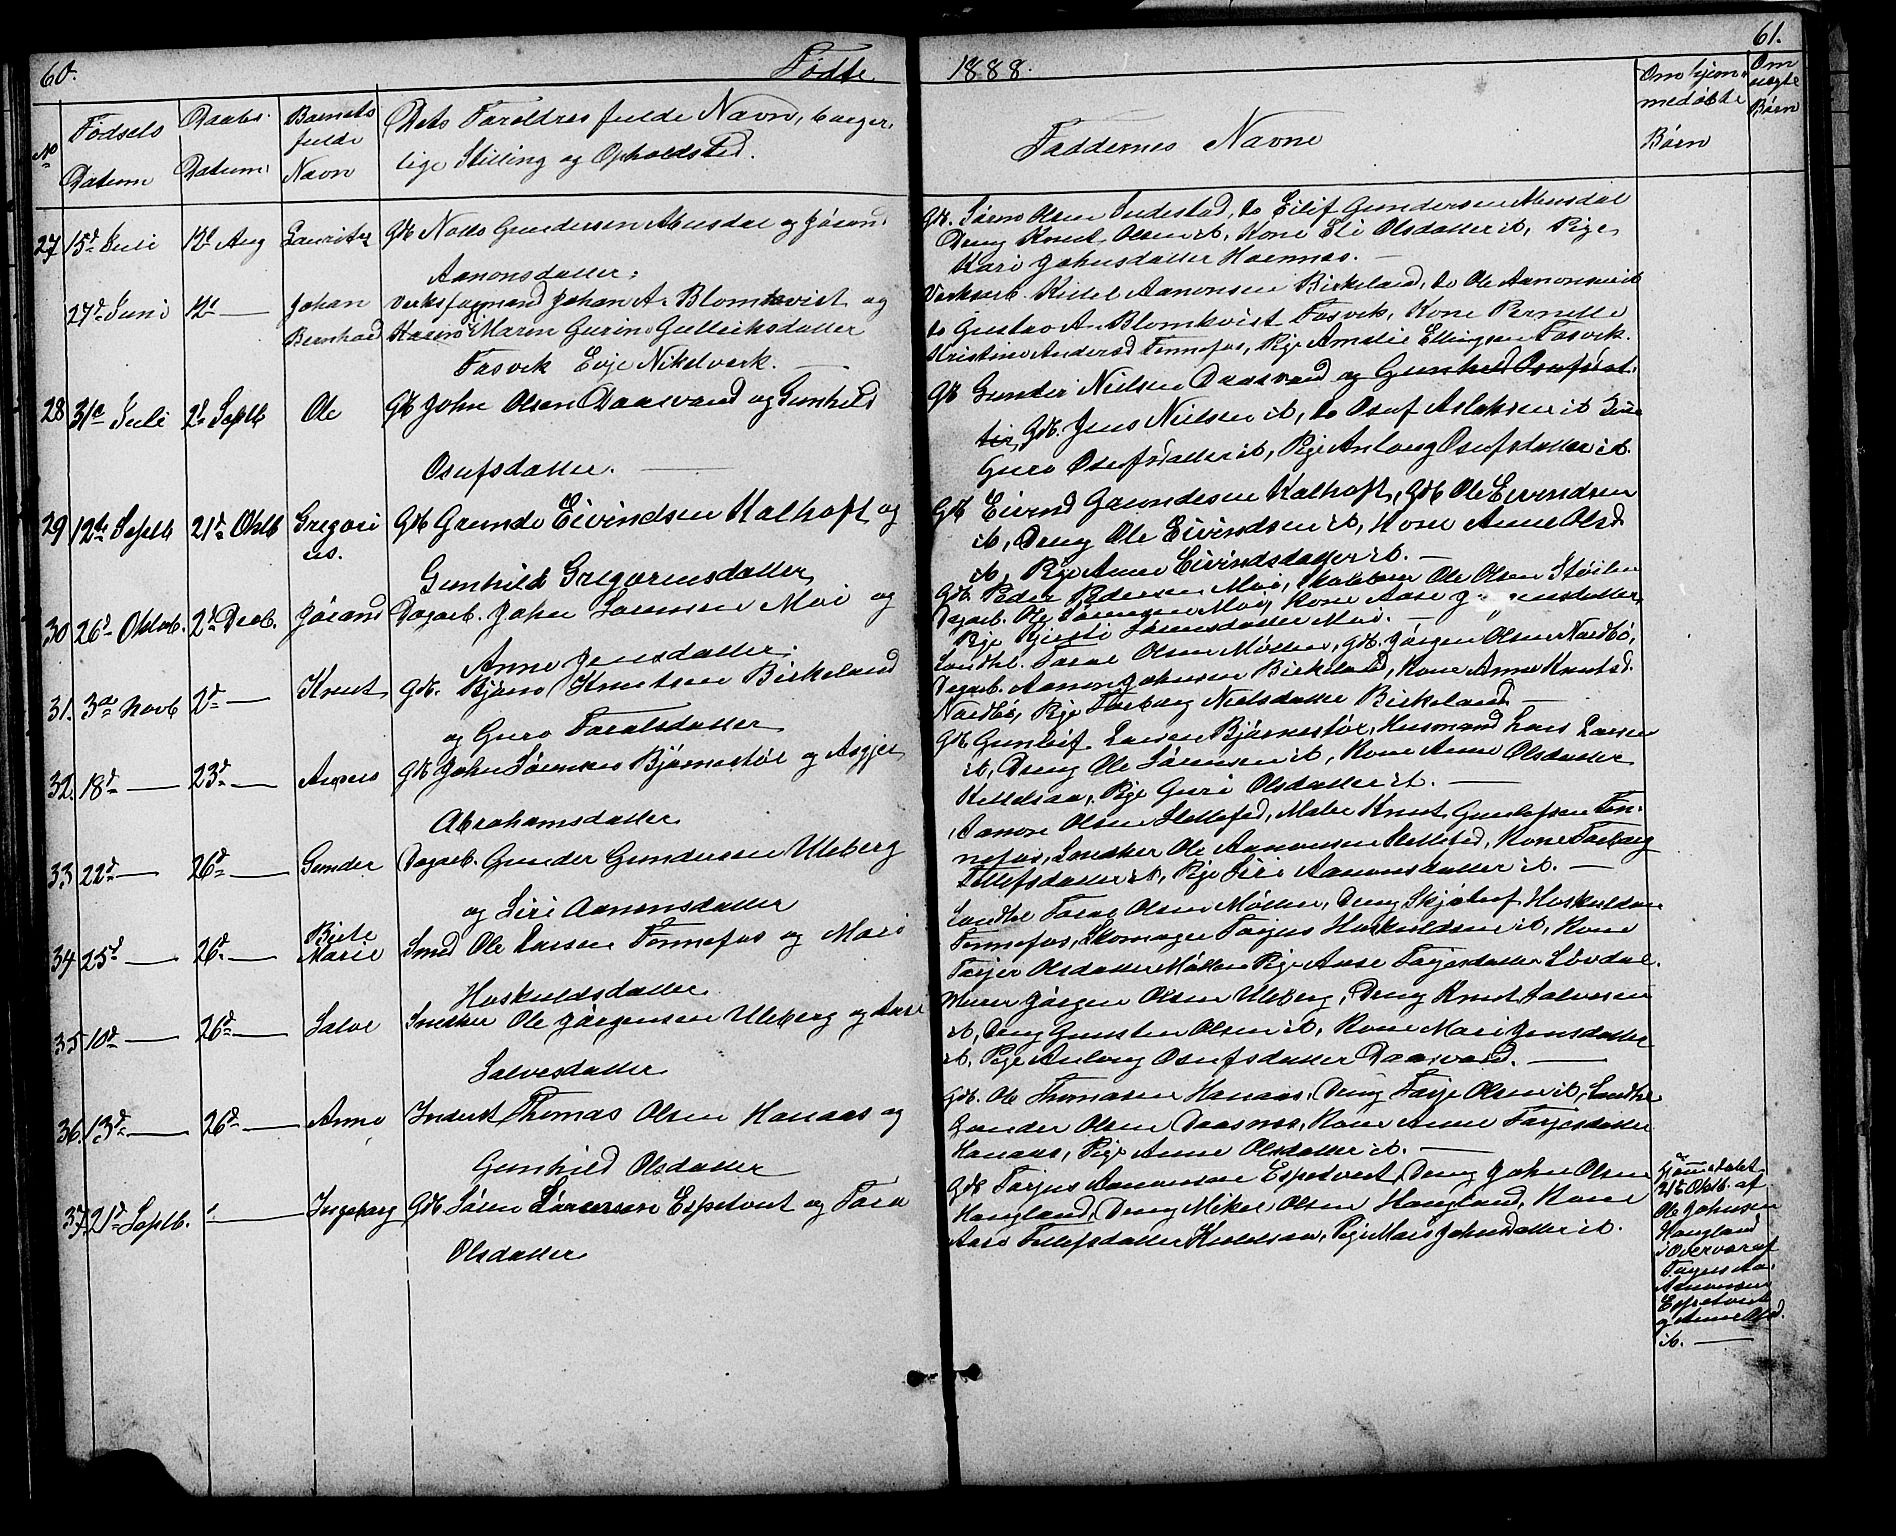 60.
Fødte
1888.
61.
No
Fødsels
Datum
Daabs.
Datum
Barnets
fulde
Navn
Dets Forældres fulde Navn, borger,
lige Stilling og Opholdsted.
Faddernes Navne
Om hjem,
medøbte
Børn
Om
uægte
Børn
27 15d Juli 12d Aug Gdb Nolls Gundersen Aknesdal og Jøran
Aanonsdatter.
Gdb. Søren Olsen do Eilif Gundersen
Dreng Knut Olsen ib, Kone Eli Olsdatter ib, Pige
Kari Johnsdatter
27d Juni 12d — Johan Verksformand Johan A. Blomkvist og
Bernhard Maren Gurine Gulleichsdatter
Fosvik Evje Nikelverk. —
Verksarb. Kittel Aanonsen Birkeland, do Ole Aanonsen ib
do Gustav A. Blomkvist Fosvik, Kone Pernelle
Kristine Andersd Fennefos, Pige Amalie Ellingsen Fosvik.
28 31te Juli 2d Septb Ole Gdb John Olsen Daasvand og Gunhild
Osufsdatter. —
Gdb Gunder Nielsen Daasvand og Gunhild
Gdb. Jens Nielsen ib, do Osuf Aslaksen ib
Guro Osufsdatter ib, Pige Anlaug Osufsdatter ib.
29 12te Septb 21d Oktb Gregori Gdb Gunde Eivindsen Kalhoft og
us.
Gunhild Gregoriusdatter
Gdb Eivind Gundesen Kalhoft, Gdb Ole Eivindsen
ib, Dreng Ole Eivindsen ib, Kone Anne Olsd
ib, Pige Anne Eivindsdatter ib. —
30 26d Oktob. 2d Decb. Jøran Dagarb. John Sørensen Moi og
Anne Jensdatter.
Gdb. Peder Pedersen Moi, Ole Olsen Støilen
Dagarb. Ole Sørensen Moi, Kone Aase
Pige Sørensdatter Moi. —
31. 3de Novb 2d — Knut Gdb. Bjøren Knutsen Birkeland
og Guro Taralsdatter
Landhl. Taral Olsen Møllen, Gdb. Jørgen Olsen Nordbø,
Dagarb. Aanon Johnsen Birkeland, Kone Anne Knutsd.
Nordbø, Pige Torborg Nielsdatter Birkeland —
32. 18d — 23d — Gdb John Sørensen Bjørnestøl og Asgjer
Abrahamsdatter
Gdb Gunleif Larsen Bjørnestøl, Husmand Lars Larsen
ib, Dreng Ole Sørensen ib, Kone Anne Olsdatter
Kittelsaa, Pige Guri Olsdatter ib. —
33 22d — 26d — Gunder Dagarb. Gunder Gundersen Uleberg
og Siri Aanonsdatter
Aanon Olsen Hellested, Maler Knut Gunleifsen Fen-
nefos, Snedker Ole Aanonsen Hellested, Kone Torborg
Tellefsdatter ib, Pige Siri Aanonsdatter ib. —
34 25d — 26d — Birte
Marie Smed Ole Larsen Fennefos og Mari
Hoskuldsdatter
Landhl Taral Olsen Møllen, Dreng Hoskuldsen
Fennefos, Skomager Tarjus Hoskuldsen ib, Kone
Tarjer Olsdatter Møllen Pige Aase Tarjesdatter Løvdal.
35 10d — 26d — Salve Snedker Ole Jørgensen Uleberg og Aase
Salvesdatter
Murer Jørgen Olsen Uleberg, Dreng Knut Salvesen
ib, Dreng Gunsten Olsen ib, Kone Mari Jensdatter
ib, Pige Anlaug Osufsdatter Daasvand. —
36. 13d — 26d — Anne Inderst Thomas Olsen Hanaas og
Gunhild Olsdatter
Gdb. Ole Thomasen Hanaas, Dreng Tarje Olsen ib, Landhl
Gunder Olsen Daasnes, Kone Anne Tarjesdatter
Hanaas, Pige Anne Olsdatter ib. —
37 21d Septb. — Ingeborg Gdb Søren Sørensen Espetveit og Tara
Olsdatter
Gdb Tarjus Aanonsen Espetveit, Dreng John Olsen
Haugland, Dreng Mikel Olsen Haugland, Kone
Aase Tellefsdatter Kittelsaa, Pige Mari Johnsdatter ib.
Hjemedøbt
21de Oktb. af
Ole Johnsen
Haugland
i Overvær af
Tarjus Aa-
Aanonsen
Espetveit
og Anne Olsd.
ib. —